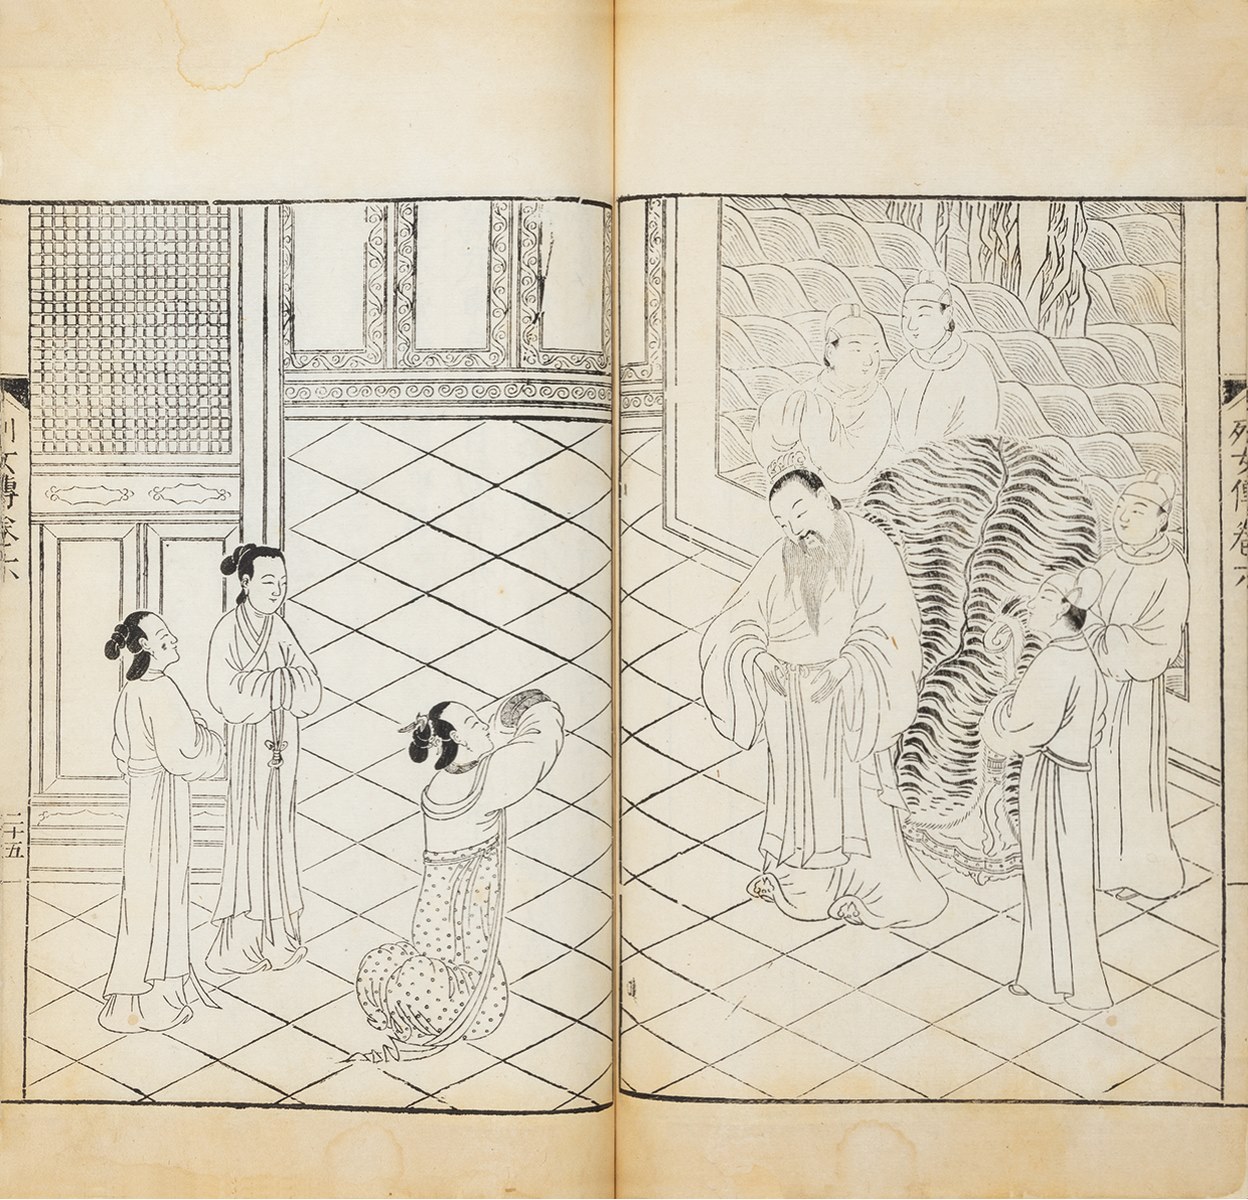 列女傳卷六
列女傳卷六
二十五